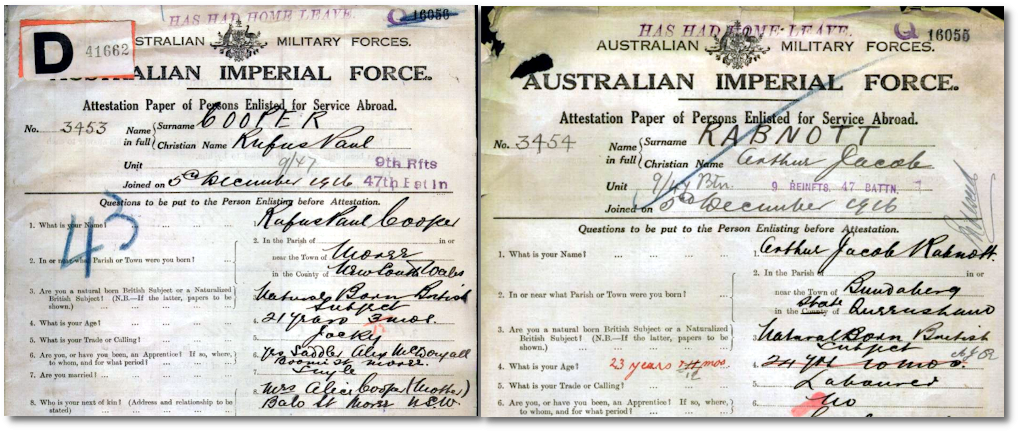 HAS HAD HOME LEAVE.
Q 16056
D 41662
AUSTRALIAN MILITARY FORCES.
AUSTRALIAN IMPERIAL FORCE.
Attestation Paper of Persons Enlisted for Service Abroad.
No. 3453
Name in full
Surname COOPER
Christian Name Rufus Paul
Unit 9/47 9th Rfts
Joined on 5th December 1916 47th Bat In
Questions to be put to the Person Enlisting before Attestation.
43
1. What is your Name? ... ... Rufus Paul Cooper
2. In or near what Parish or Town were you born? ...
2. In the Parish of in or
near the Town of Moree
in the County of New South Wales
3. Are you a natural born British Subject or a Naturalized
British Subject? (N.B.—If the latter, papers to be
shown.) ... ... ...
Natural Born British
Subject
4. What is your Age? ... ... 21 years 3 mos.
5. What is your Trade or Calling? ... ... 5. Jocky
6. Are you, or have you been, an Apprentice? If so, where,
to whom, and for what period? ... ...
Yes Saddler Alex McDougall
Moree
7. Are you married? ... ... Single
8. Who is your next of kin? (Address and relationship to be
stated) ... ...
Mrs Alice Cooper (Mother)
Balo St Moree N.S.W.
HAS HAD HOME LEAVE.
Q 16055
AUSTRALIAN MILITARY FORCES.
AUSTRALIAN IMPERIAL FORCE.
Attestation Paper of Persons Enlisted for Service Abroad.
No. 3454
Name in full
Surname RABNOTT
Christian Name Arthur Jacob
Unit 9/47 Btn. 9 REINFTS. 47 BATTN.
Joined on 5th December 1916
Questions to be put to the Person Enlisting before Attestation.
1. What is your Name? ... ... 1. Arthur Jacob Rabnott
2. In or near what Parish or Town were you born? ...
2. In the Parish of in or
near the Town of Bundaberg
in the County of State Queensland
3. Are you a natural born British Subject or a Naturalized
British Subject? (N.B.—If the latter, papers to be
shown.) ... ... ...
Natural Born British
Subject
4. What is your Age? ... 23 years mos 4. 24 yrs 10 mos.
5. What is your Trade or Calling? ... ... 5. Labourer
6. Are you, or have you been, an Apprentice? If so, where,
to whom, and for what period? ... ...
6. No